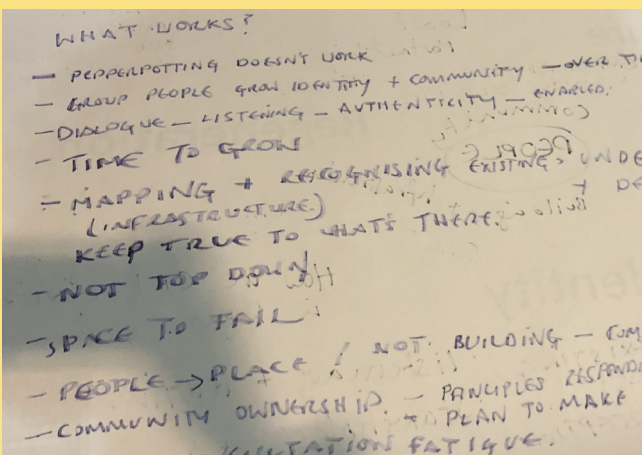 WHAT WORKS?
— PEPPERPOTTING DOESN'T WORK
— GROUP PEOPLE GROW IDENTITY + COMMUNITY — OVER
— DIALOGUE — LISTENING — AUTHENTICITY — ENABLED.
— TIME TO GROW
— MAPPING + RECOGNISING EXISTING, UNDE
(INFRASTRUCTURE) + DE
KEEP TRUE TO WHAT'S THERE.
— NOT TOP DOWN
— SPACE TO FAIL
— PEOPLE → PLACE / NOT BUILDING — COM
— COMMUNITY OWNERSHIP. — PRINCIPLES RESPOND
+ PLAN TO MAKE
FATIGUE.